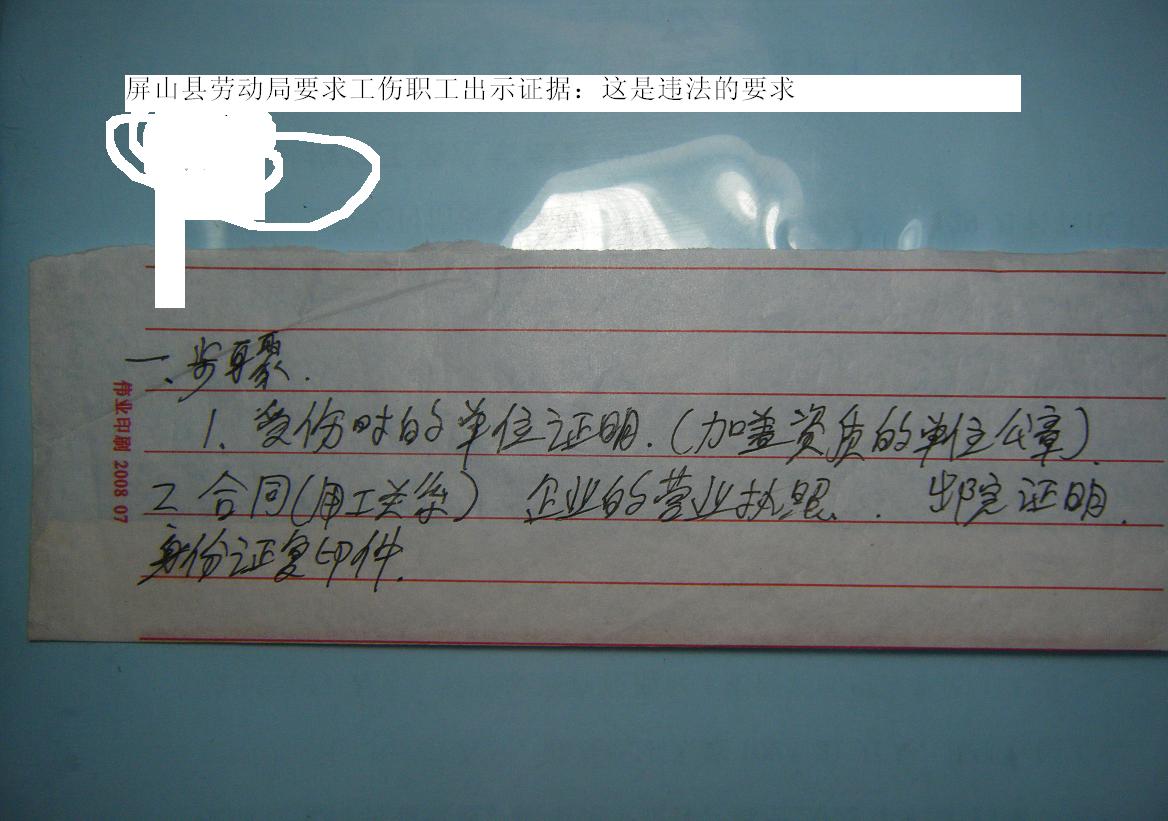 屏山县劳动局要求工伤职工出示证据：这是违法的要求
一、步骤.
1、受伤时的单位证明.（加盖资质的单位公章）.
2 合同（用工关系） 企业的营业执照. 出院证明.
身份证复印件.
伟业印刷 2008 07